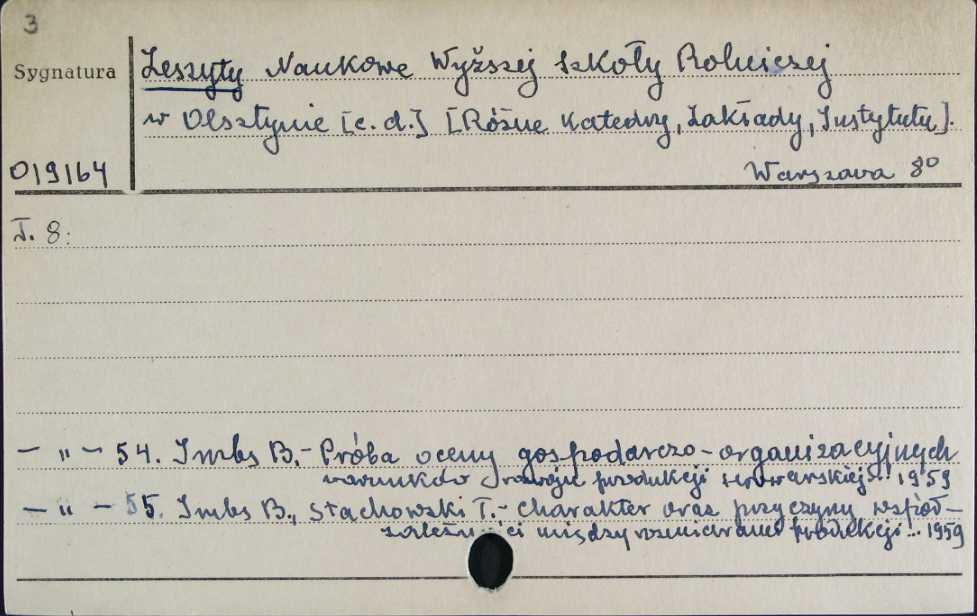 3
Sygnatura
Zeszyty Naukowe Wyższej Szkoły Rolniczej
w Olsztynie [c.d.] [Różne Katedry, Zakłady, Instytuty].
019164
Warszawa 8°
T. 8:
— " — 54. Imbs B. - Próba oceny gospodarczo-organizacyjnych
warunków rozwoju produkcji serowarskiej... 1959
— " — 55. Imbs B., Stachowski T. - Charakter oraz przyczyny współ-
zależności między rozmiarami produkcji... 1959